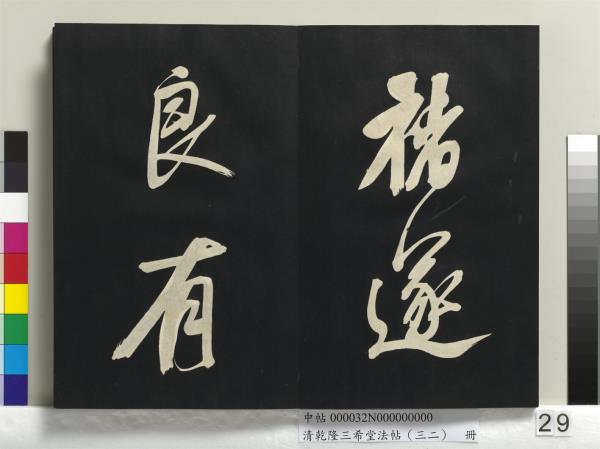 褚遂
良有
中帖 000032N000000000
清乾隆三希堂法帖（三二） 冊
29